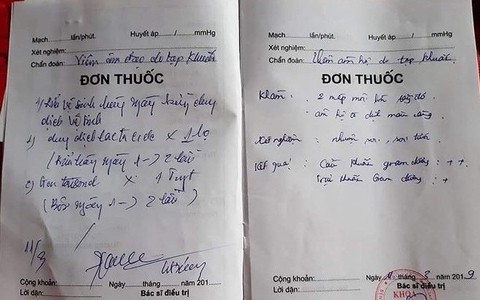 Mạch..............lần/phút. Huyết áp / mmHg
Xét nghiệm:
Chẩn đoán: Viêm âm đạo do tạp khuẩn
ĐƠN THUỐC
1) Rửa vệ sinh hàng ngày bằng dung
dịch vệ sinh
2) dung dịch lactacide x 1 lọ
(Rửa hàng ngày 1 -> 2 lần
3) x 1 Tuyp
(Bôi ngày 1 -> 2 lần)
11/8
Cộng khoản: Ngày......tháng......năm 201
Lời dặn: Bác sĩ điều trị
Mạch..............lần/phút. Huyết áp / mmHg
Xét nghiệm:
Chẩn đoán: Viêm âm hộ do tạp khuẩn
ĐƠN THUỐC
Khám : 2 mép môi lớn
âm hộ có dịch màu vàng
Xét nghiệm : nhuộm soi, soi tươi
Kết quả : Cầu khuẩn gram dương : + +
Trực khuẩn Gram dương : +
Cộng khoản: Ngày 11 tháng 8 năm 2019
Lời dặn: Bác sĩ điều trị
KHOA